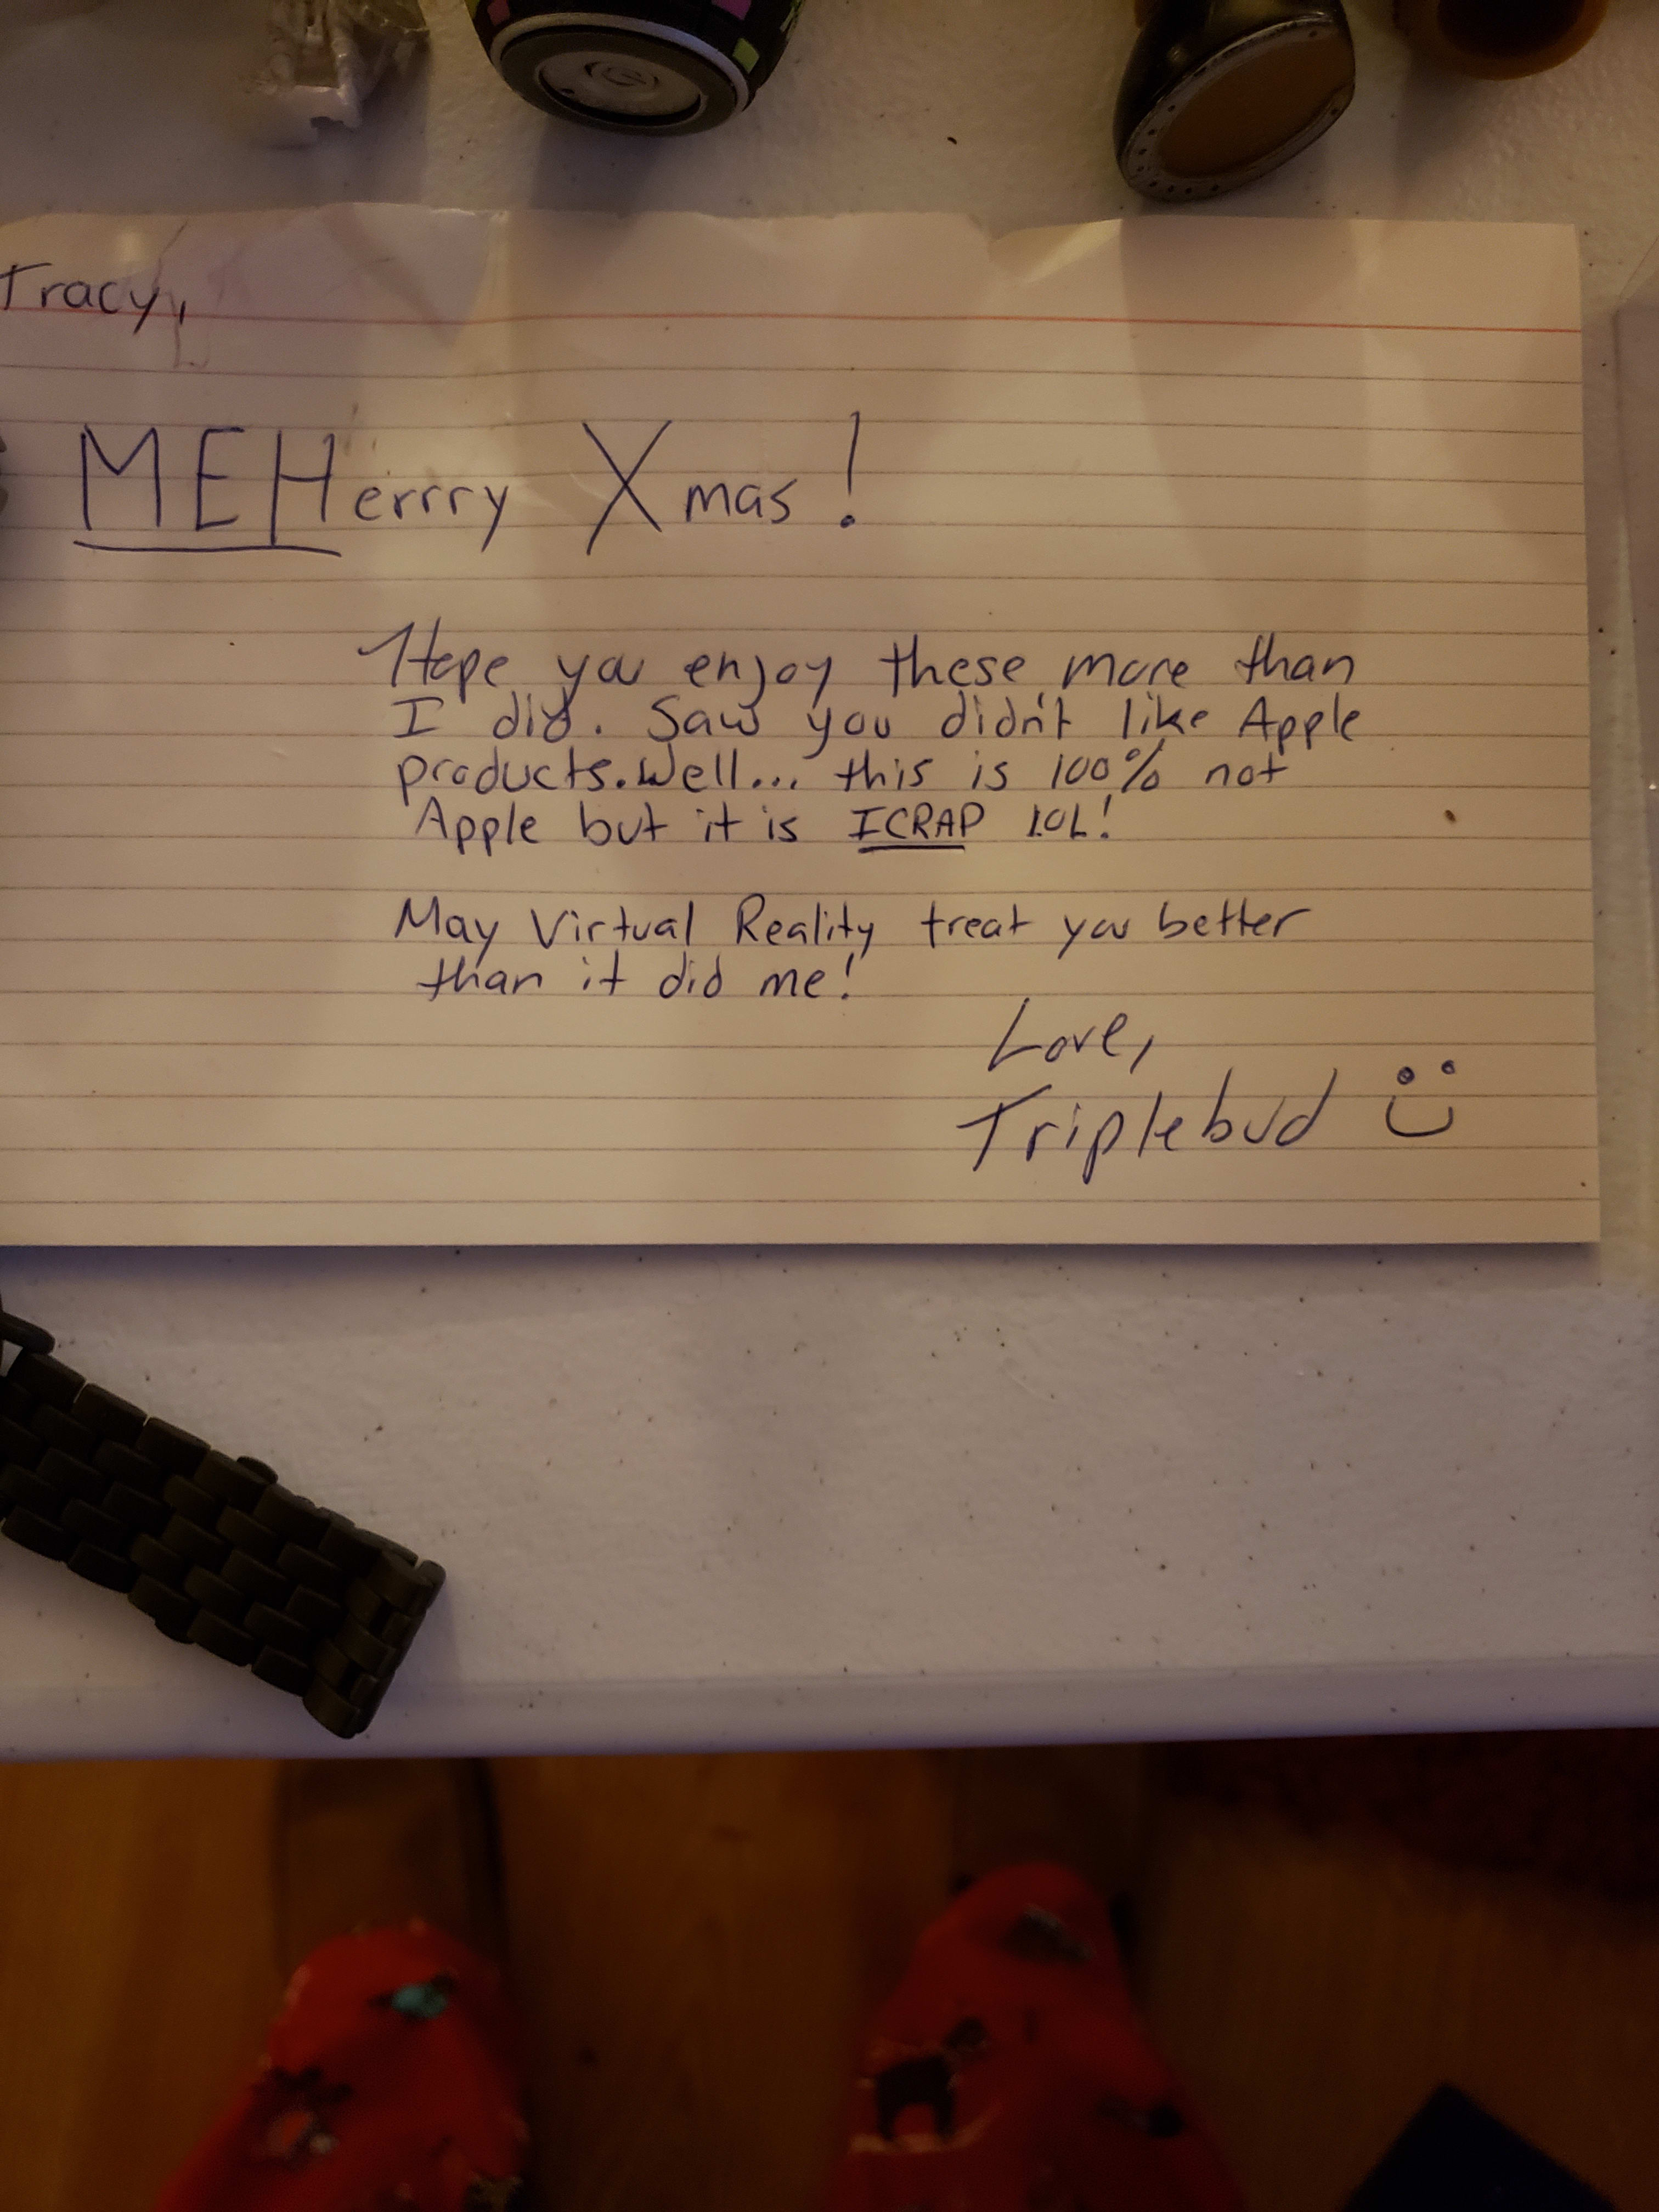 Tracy,
MEHerrry Xmas!
Hope you enjoy these more than
I did. Saw you didn't like Apple
products. Well... this is 100% not
Apple but it is ICRAP LOL!
May Virtual Reality treat you better
than it did me!
Love,
Triplebud